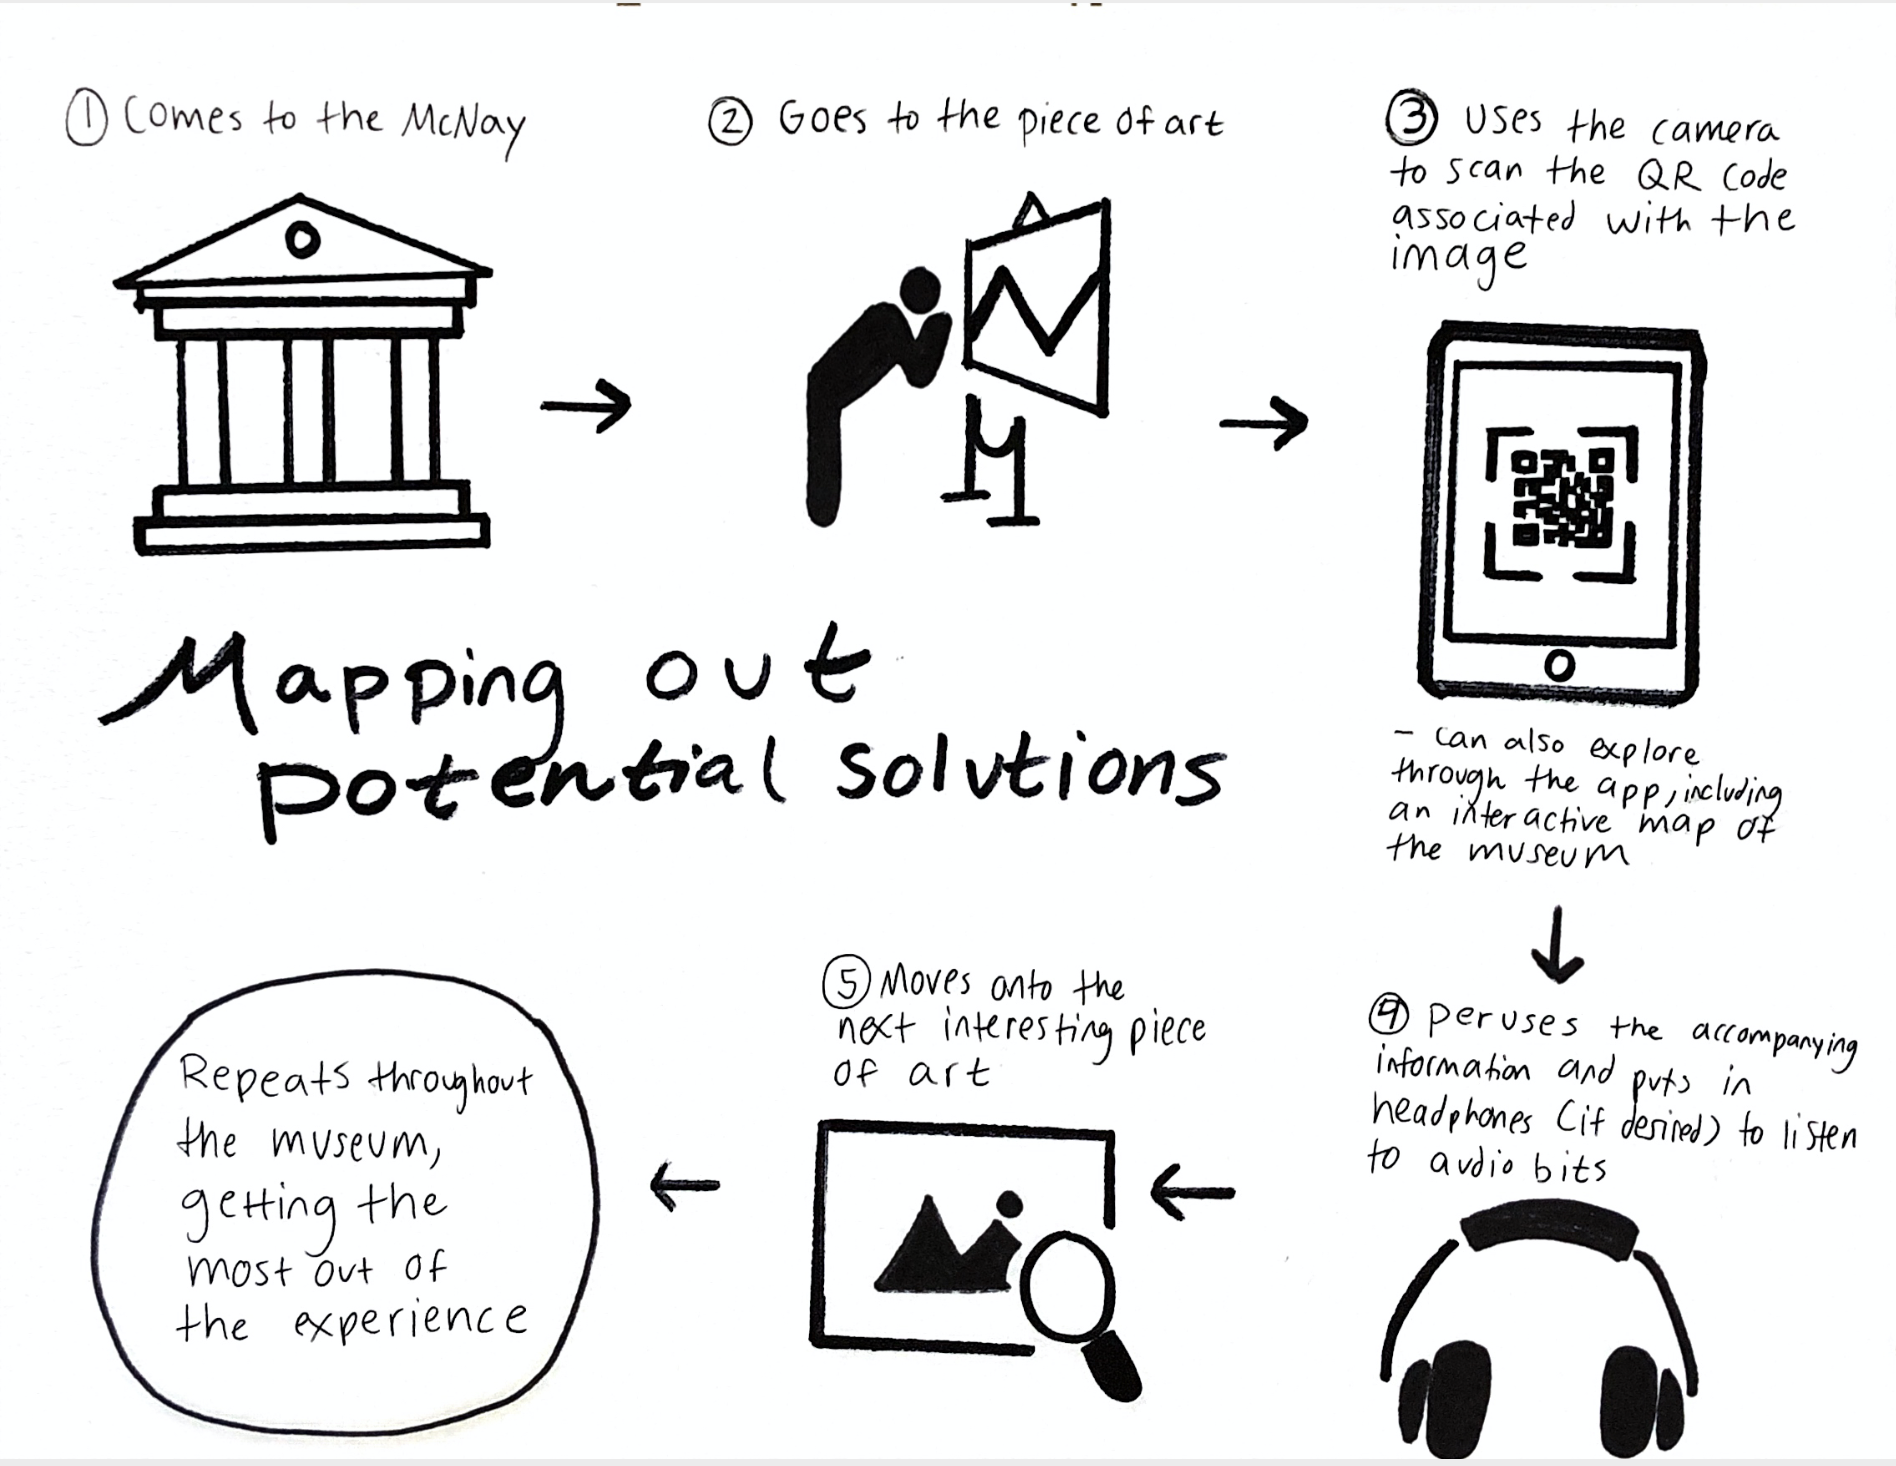 ① Comes to the McNay
② Goes to the piece of art
③ Uses the camera
to scan the QR code
associated with the
image
- can also explore
through the app, including
an interactive map of
the museum
Mapping out
potential solutions
④ Peruses the accompanying
information and puts in
headphones (if desired) to listen
to audio bits
⑤ Moves onto the
next interesting piece
of art
Repeats throughout
the museum,
getting the
most out of
the experience